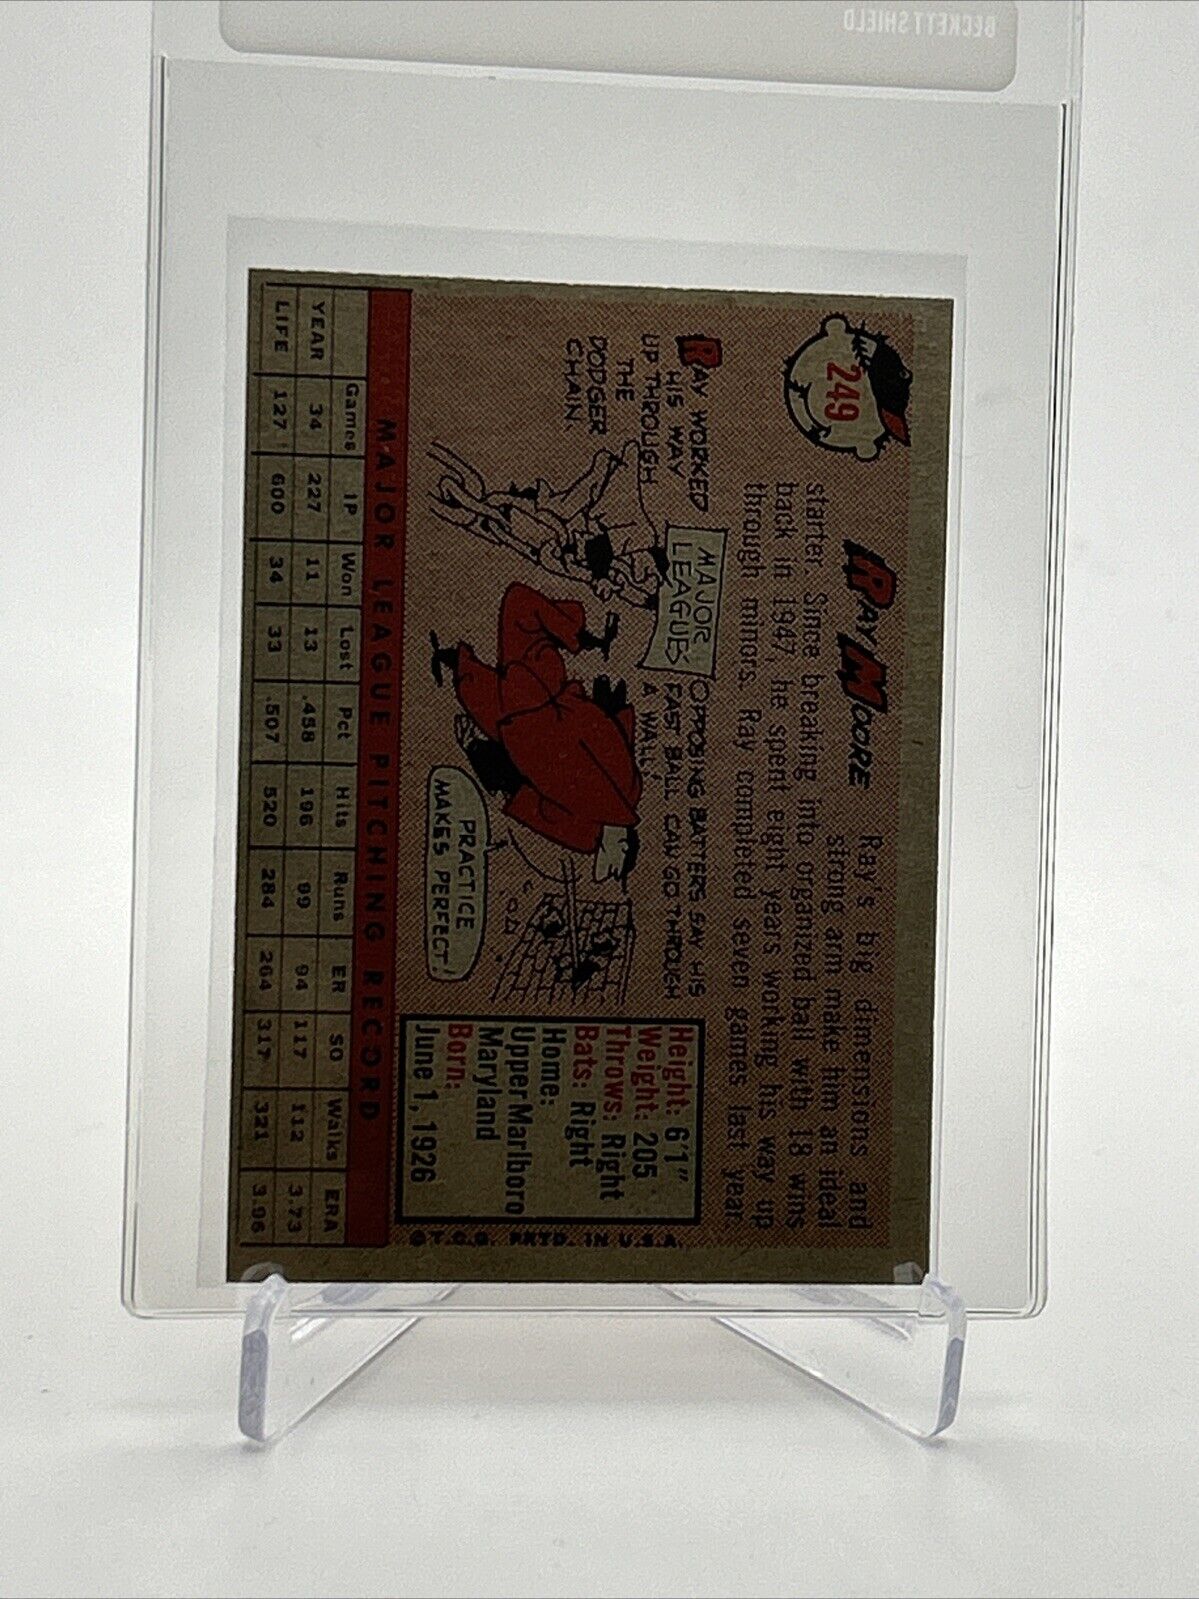 BECKETT SHIELD
249
RAY MOORE
Ray's big dimensions and
strong arm make him an ideal
starter. Since breaking into organized ball with 18 wins
back in 1947, he spent eight years working his way up
through minors. Ray completed seven games last year.
RAY WORKED
HIS WAY
UP THROUGH
THE
DODGER
CHAIN.
MAJOR
LEAGUES
OPPOSING BATTERS SAY HIS
FAST BALL CAN GO THROUGH
A WALL!
PRACTICE
MAKES PERFECT!
Height: 6'1"
Weight: 205
Throws: Right
Bats: Right
Home:
Upper Marlboro
Maryland
Born:
June 1, 1926
© T.C.G. PRTD. IN U.S.A.
MAJOR LEAGUE PITCHING RECORD
Games IP Won Lost Pct Hits Runs ER SO Walks ERA
YEAR 34 227 11 13 .458 196 99 94 117 112 3.73
LIFE 127 600 34 33 .507 520 284 264 317 321 3.96